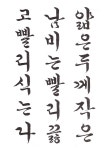 얇은두께작은
난비는빨리끓
고빨리식는다